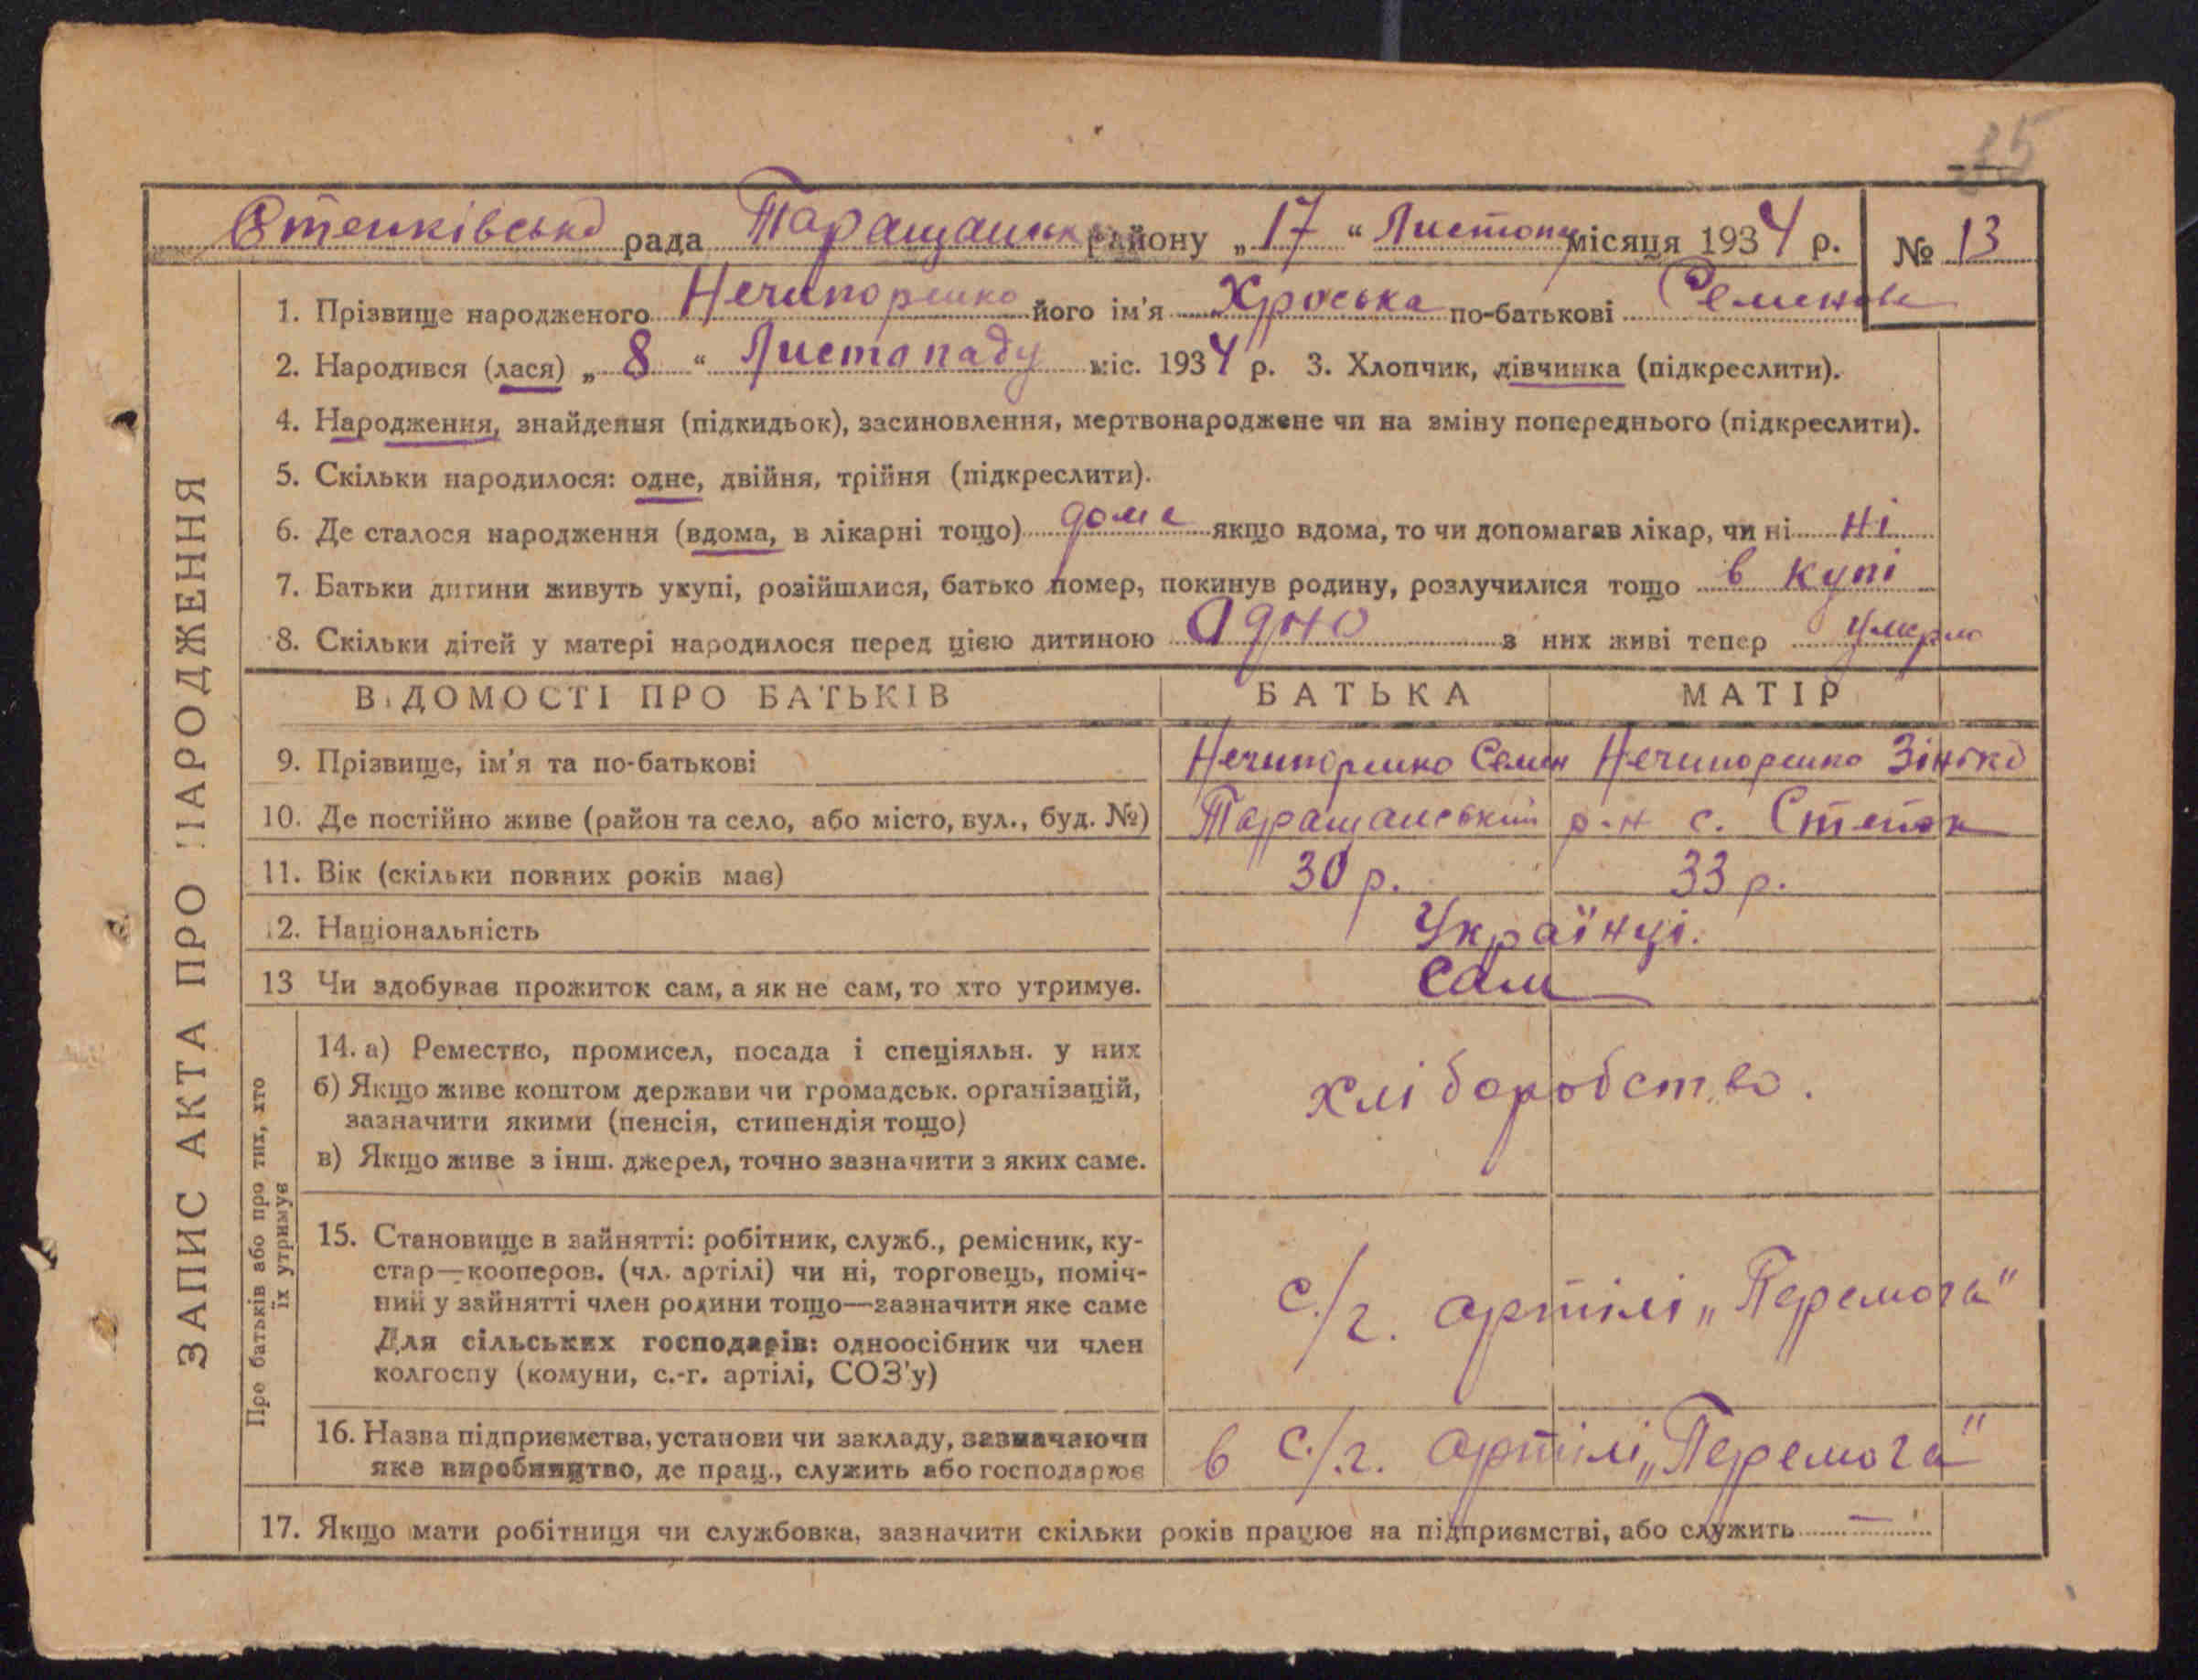 15
Степківська рада Таращанськ району „ 17 “ Листопу місяця 1934 р. № 13
1. Прізвище народженого Нечипоренко його ім'я Хроська по-батькові Семенов
2. Народився (лася) „ 8 “ Листопаду міс. 1934 р. 3. Хлопчик, дівчинка (підкреслити).
4. Народження, знайдення (підкидьок), засиновлення, мертвонароджене чи на зміну попереднього (підкреслити).
5. Скільки народилося: одне, двійня, трійня (підкреслити).
6. Де сталося народження (вдома, в лікарні тощо) доме якщо вдома, то чи допомагав лікар, чи ні ні
7. Батьки дитини живуть укупі, розійшлися, батько помер, покинув родину, розлучилися тощо в купі
8. Скільки дітей у матері народилося перед цією дитиною одно з них живі тепер умерло
ВІДОМОСТІ ПРО БАТЬКІВ БАТЬКА МАТІР
9. Прізвище, ім'я та по-батькові Нечипоренко Семен Нечипоренко Зінька
10. Де постійно живе (район та село, або місто, вул., буд. №) Таращанський р-н с. Степок
11. Вік (скільки повних років має) 30 р. 33 р.
12. Національність Українці.
13 Чи здобуває прожиток сам, а як не сам, то хто утримує. Сам
14. а) Ремество, промисел, посада і спеціяльн. у них
б) Якщо живе коштом держави чи громадськ. організацій,
зазначити якими (пенсія, стипендія тощо)
в) Якщо живе з інш. джерел, точно зазначити з яких саме.
хліборобство.
15. Становище в зайнятті: робітник, служб., ремісник, ку-
стар—кооперов. (чл. артілі) чи ні, торговець, поміч-
ний у зайнятті член родини тощо—зазначити яке саме
Для сільських господарів: одноосібник чи член
колгоспу (комуни, с.-г. артілі, СОЗ'у)
с./г. артілі „Перемога“
16. Назва підприємства, установи чи закладу, зазначаючи
яке виробництво, де прац., служить або господарює
в с./г. артілі „Перемога“
17. Якщо мати робітниця чи службовка, зазначити скільки років працює на підприємстві, або служить —
ЗАПИС АКТА ПРО НАРОДЖЕННЯ
Про батьків або про тих, хто
їх утримує